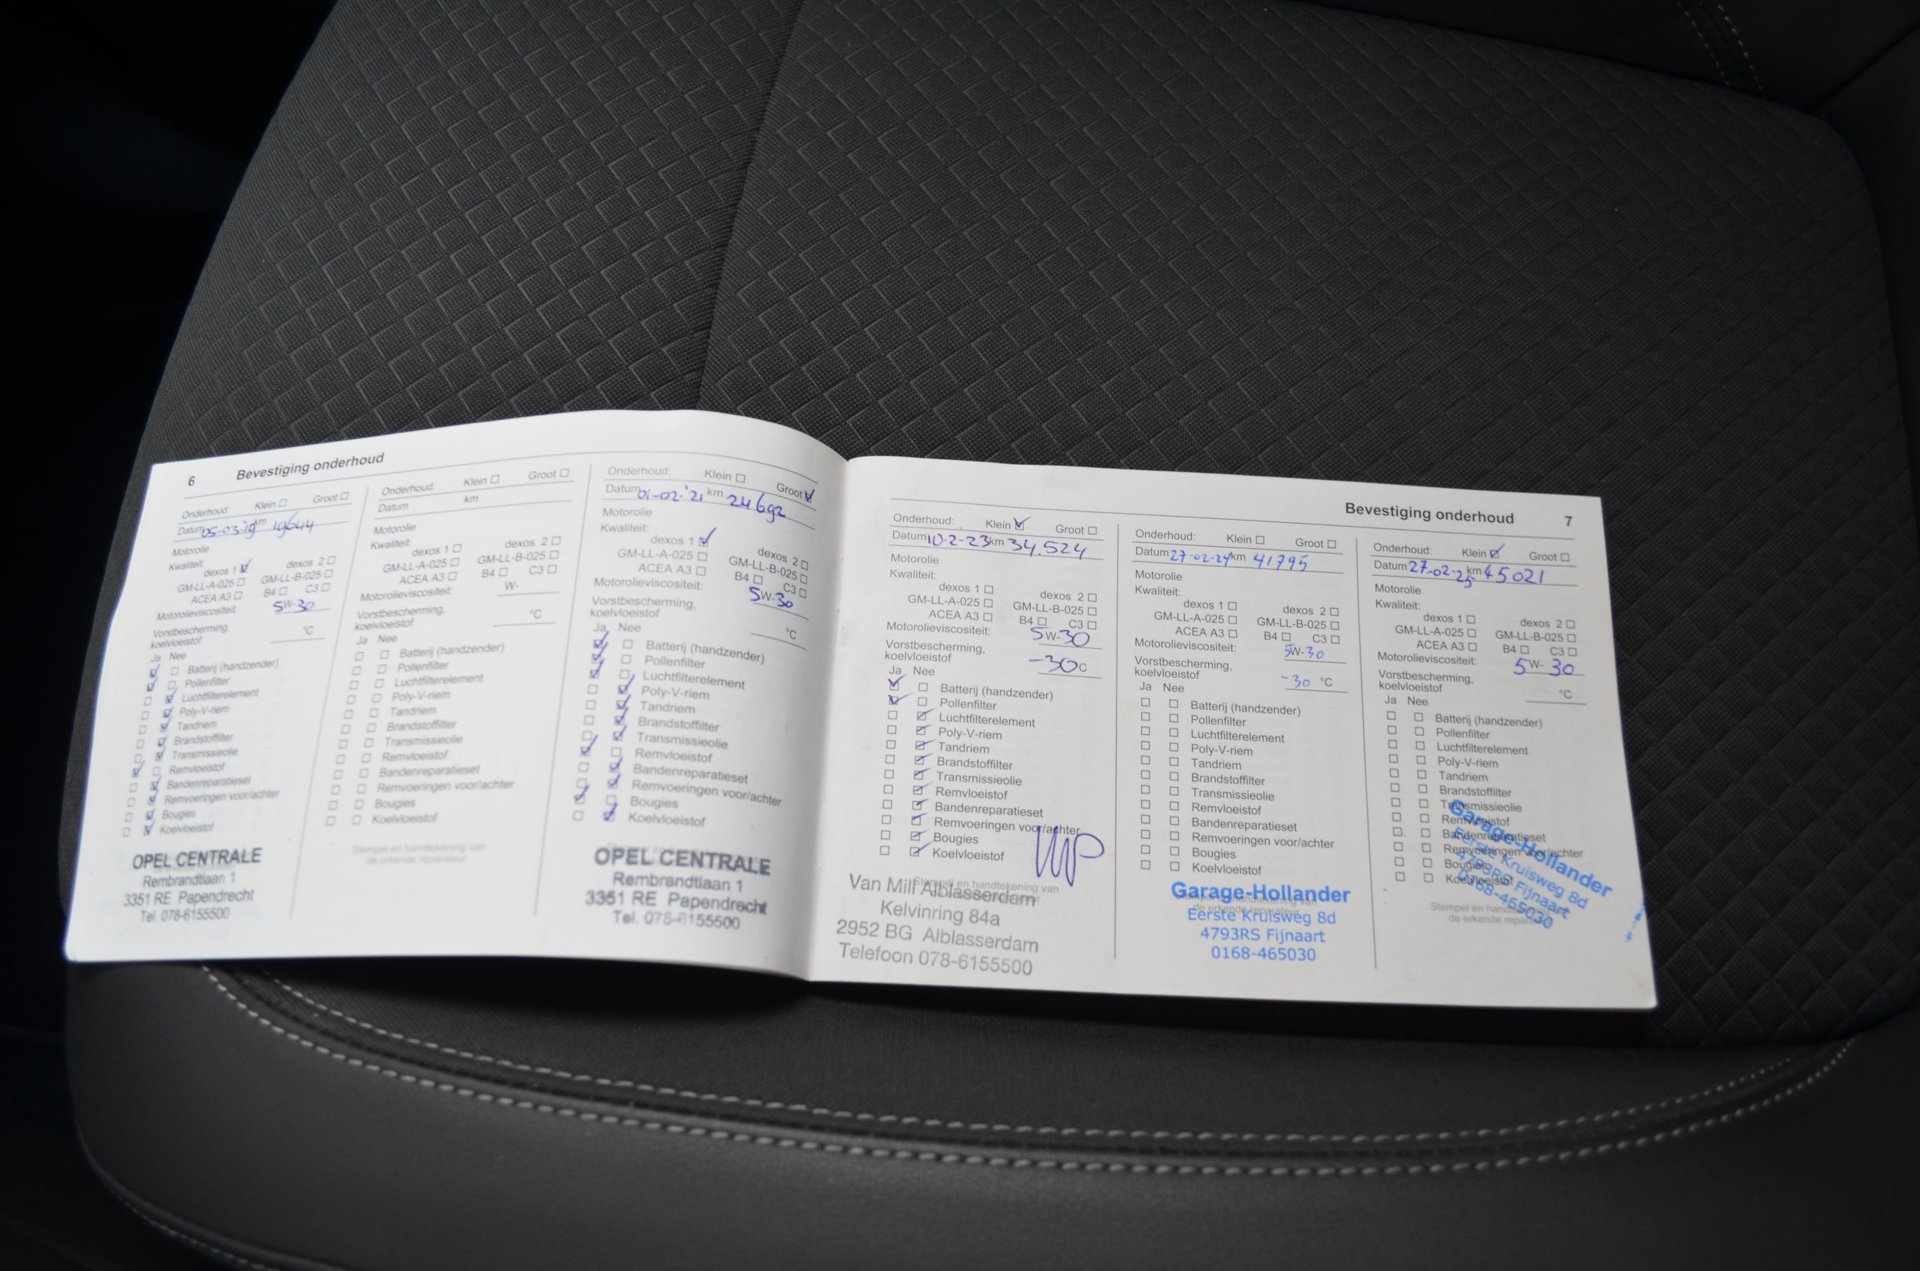 6 Bevestiging onderhoud
Onderhoud: Klein ☐ Groot ☐
Datum 05-03-'19 km 19644
Motorolie
Kwaliteit:
dexos 1 ☑ dexos 2 ☐
GM-LL-A-025 ☐ GM-LL-B-025 ☐
ACEA A3 ☐ B4 ☐ C3 ☐
Motorolieviscositeit: 5W-30
Vorstbescherming,
koelvloeistof °C
Ja Nee
☑ ☐ Batterij (handzender)
☑ ☐ Pollenfilter
☐ ☑ Luchtfilterelement
☐ ☑ Poly-V-riem
☐ ☑ Tandriem
☐ ☑ Brandstoffilter
☐ ☑ Transmissieolie
☑ ☐ Remvloeistof
☐ ☑ Bandenreparatieset
☐ ☑ Remvoeringen voor/achter
☐ ☑ Bougies
☐ ☑ Koelvloeistof
OPEL CENTRALE
Rembrandtlaan 1
3351 RE Papendrecht
Tel. 078-6155500
Onderhoud: Klein ☐ Groot ☐
Datum km
Motorolie
Kwaliteit:
dexos 1 ☐ dexos 2 ☐
GM-LL-A-025 ☐ GM-LL-B-025 ☐
ACEA A3 ☐ B4 ☐ C3 ☐
Motorolieviscositeit: W-
Vorstbescherming,
koelvloeistof °C
Ja Nee
☐ ☐ Batterij (handzender)
☐ ☐ Pollenfilter
☐ ☐ Luchtfilterelement
☐ ☐ Poly-V-riem
☐ ☐ Tandriem
☐ ☐ Brandstoffilter
☐ ☐ Transmissieolie
☐ ☐ Remvloeistof
☐ ☐ Bandenreparatieset
☐ ☐ Remvoeringen voor/achter
☐ ☐ Bougies
☐ ☐ Koelvloeistof
Stempel en handtekening van
de erkende reparateur
Onderhoud: Klein ☐ Groot ☑
Datum 01-02-'21 km 24692
Motorolie
Kwaliteit:
dexos 1 ☑ dexos 2 ☐
GM-LL-A-025 ☐ GM-LL-B-025 ☐
ACEA A3 ☐ B4 ☐ C3 ☐
Motorolieviscositeit: 5W-30
Vorstbescherming,
koelvloeistof °C
Ja Nee
☑ ☐ Batterij (handzender)
☑ ☐ Pollenfilter
☑ ☐ Luchtfilterelement
☐ ☑ Poly-V-riem
☐ ☑ Tandriem
☐ ☑ Brandstoffilter
☐ ☑ Transmissieolie
☑ ☐ Remvloeistof
☐ ☑ Bandenreparatieset
☐ ☑ Remvoeringen voor/achter
☑ ☐ Bougies
☐ ☑ Koelvloeistof
OPEL CENTRALE
Rembrandtlaan 1
3351 RE Papendrecht
Tel. 078-6155500
Bevestiging onderhoud 7
Onderhoud: Klein ☑ Groot ☐
Datum 10-2-23 km 34.524
Motorolie
Kwaliteit:
dexos 1 ☐ dexos 2 ☐
GM-LL-A-025 ☐ GM-LL-B-025 ☐
ACEA A3 ☐ B4 ☐ C3 ☐
Motorolieviscositeit: 5W-30
Vorstbescherming,
koelvloeistof -30°C
Ja Nee
☑ ☐ Batterij (handzender)
☑ ☐ Pollenfilter
☐ ☑ Luchtfilterelement
☐ ☑ Poly-V-riem
☐ ☑ Tandriem
☐ ☑ Brandstoffilter
☐ ☑ Transmissieolie
☐ ☑ Remvloeistof
☐ ☑ Bandenreparatieset
☐ ☑ Remvoeringen voor/achter
☐ ☑ Bougies
☐ ☑ Koelvloeistof
Stempel en handtekening van
Van Mill Alblasserdam
Kelvinring 84a
2952 BG Alblasserdam
Telefoon 078-6155500
Onderhoud: Klein ☐ Groot ☐
Datum 27-02-24 km 41795
Motorolie
Kwaliteit:
dexos 1 ☐ dexos 2 ☐
GM-LL-A-025 ☐ GM-LL-B-025 ☐
ACEA A3 ☐ B4 ☐ C3 ☐
Motorolieviscositeit: 5W-30
Vorstbescherming,
koelvloeistof -30 °C
Ja Nee
☐ ☐ Batterij (handzender)
☐ ☐ Pollenfilter
☐ ☐ Luchtfilterelement
☐ ☐ Poly-V-riem
☐ ☐ Tandriem
☐ ☐ Brandstoffilter
☐ ☐ Transmissieolie
☐ ☐ Remvloeistof
☐ ☐ Bandenreparatieset
☐ ☐ Remvoeringen voor/achter
☐ ☐ Bougies
☐ ☐ Koelvloeistof
Garage-Hollander
Eerste Kruisweg 8d
4793RS Fijnaart
0168-465030
Onderhoud: Klein ☑ Groot ☐
Datum 27-02-25 km 45021
Motorolie
Kwaliteit:
dexos 1 ☐ dexos 2 ☐
GM-LL-A-025 ☐ GM-LL-B-025 ☐
ACEA A3 ☐ B4 ☐ C3 ☐
Motorolieviscositeit: 5W-30
Vorstbescherming,
koelvloeistof °C
Ja Nee
☐ ☐ Batterij (handzender)
☐ ☐ Pollenfilter
☐ ☐ Luchtfilterelement
☐ ☐ Poly-V-riem
☐ ☐ Tandriem
☐ ☐ Brandstoffilter
☐ ☐ Transmissieolie
☐ ☐ Remvloeistof
☐ ☐ Bandenreparatieset
☐ ☐ Remvoeringen voor/achter
☐ ☐ Bougies
☐ ☐ Koelvloeistof
Garage-Hollander
Eerste Kruisweg 8d
4793RS Fijnaart
0168-465030
Stempel en
de erkende